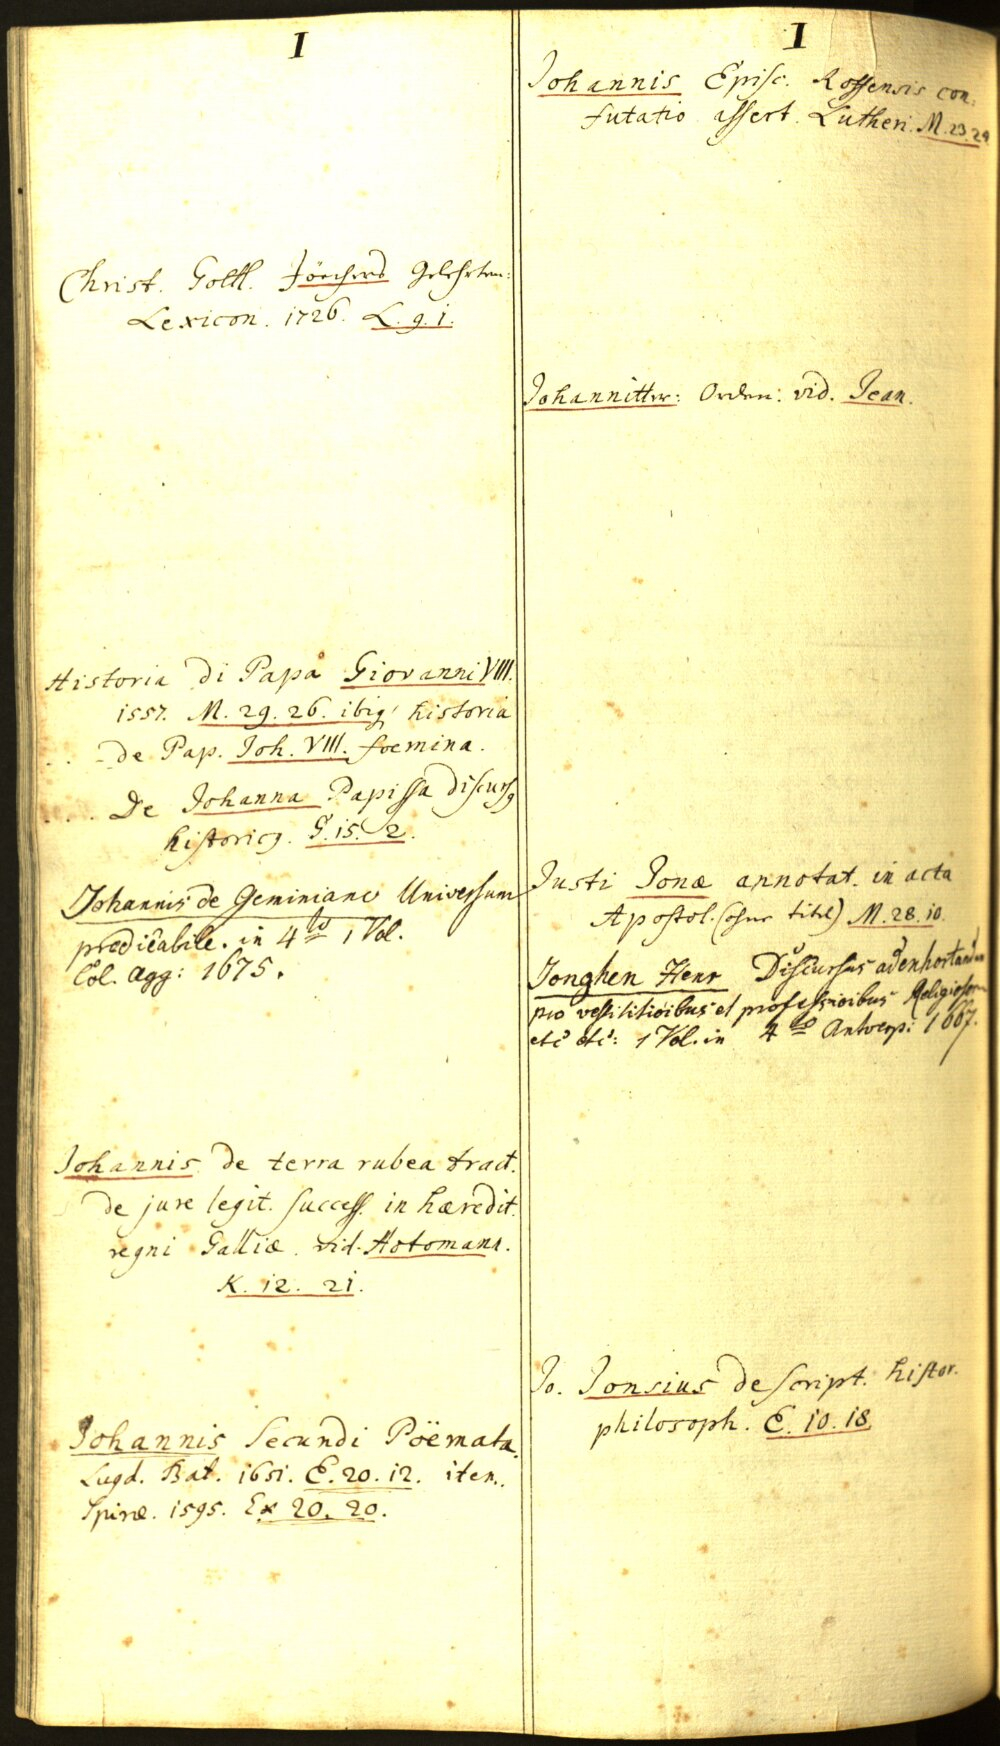 I
Christ. Gottl. Jöchers Gelehrten-
Lexicon. 1726. L. 9. i.
Historia di Papa Giovanni VIII.
1557. M. 29. 26. ibiq; historia
de Pap. Joh. VIII. foemina.
De Johanna Papissa discursq
historicq. G. 15. 2.
Johannis de Geminiano Universum
predicabile. in 4to 1 Vol.
Col. Agg: 1675.
Johannis de terra rubea tract.
de jure legit. success. in hæredit.
regni Galliæ. vid. Hotomani.
K. 12. 21.
Johannis Secundi Poëmata
Lugd. Bat. 1651. E. 20. 12. item.
Spiræ. 1595. Ex 20. 20.
I
Johannis Episc. Roffensis con-
futatio assert. Lutheri. M. 23. 29
Johannitter-Orden: vid. Jean.
Justi Jonæ annotat. in acta
Apostol. (ohne titel) M. 28. 10.
Jonghen Henr Discursus
pro et professioibus
etc etc: 1 Vol. in 4to Antwerp: 1667.
Jo. Jonsius de script. histor.
philosoph. E. 10. 18.